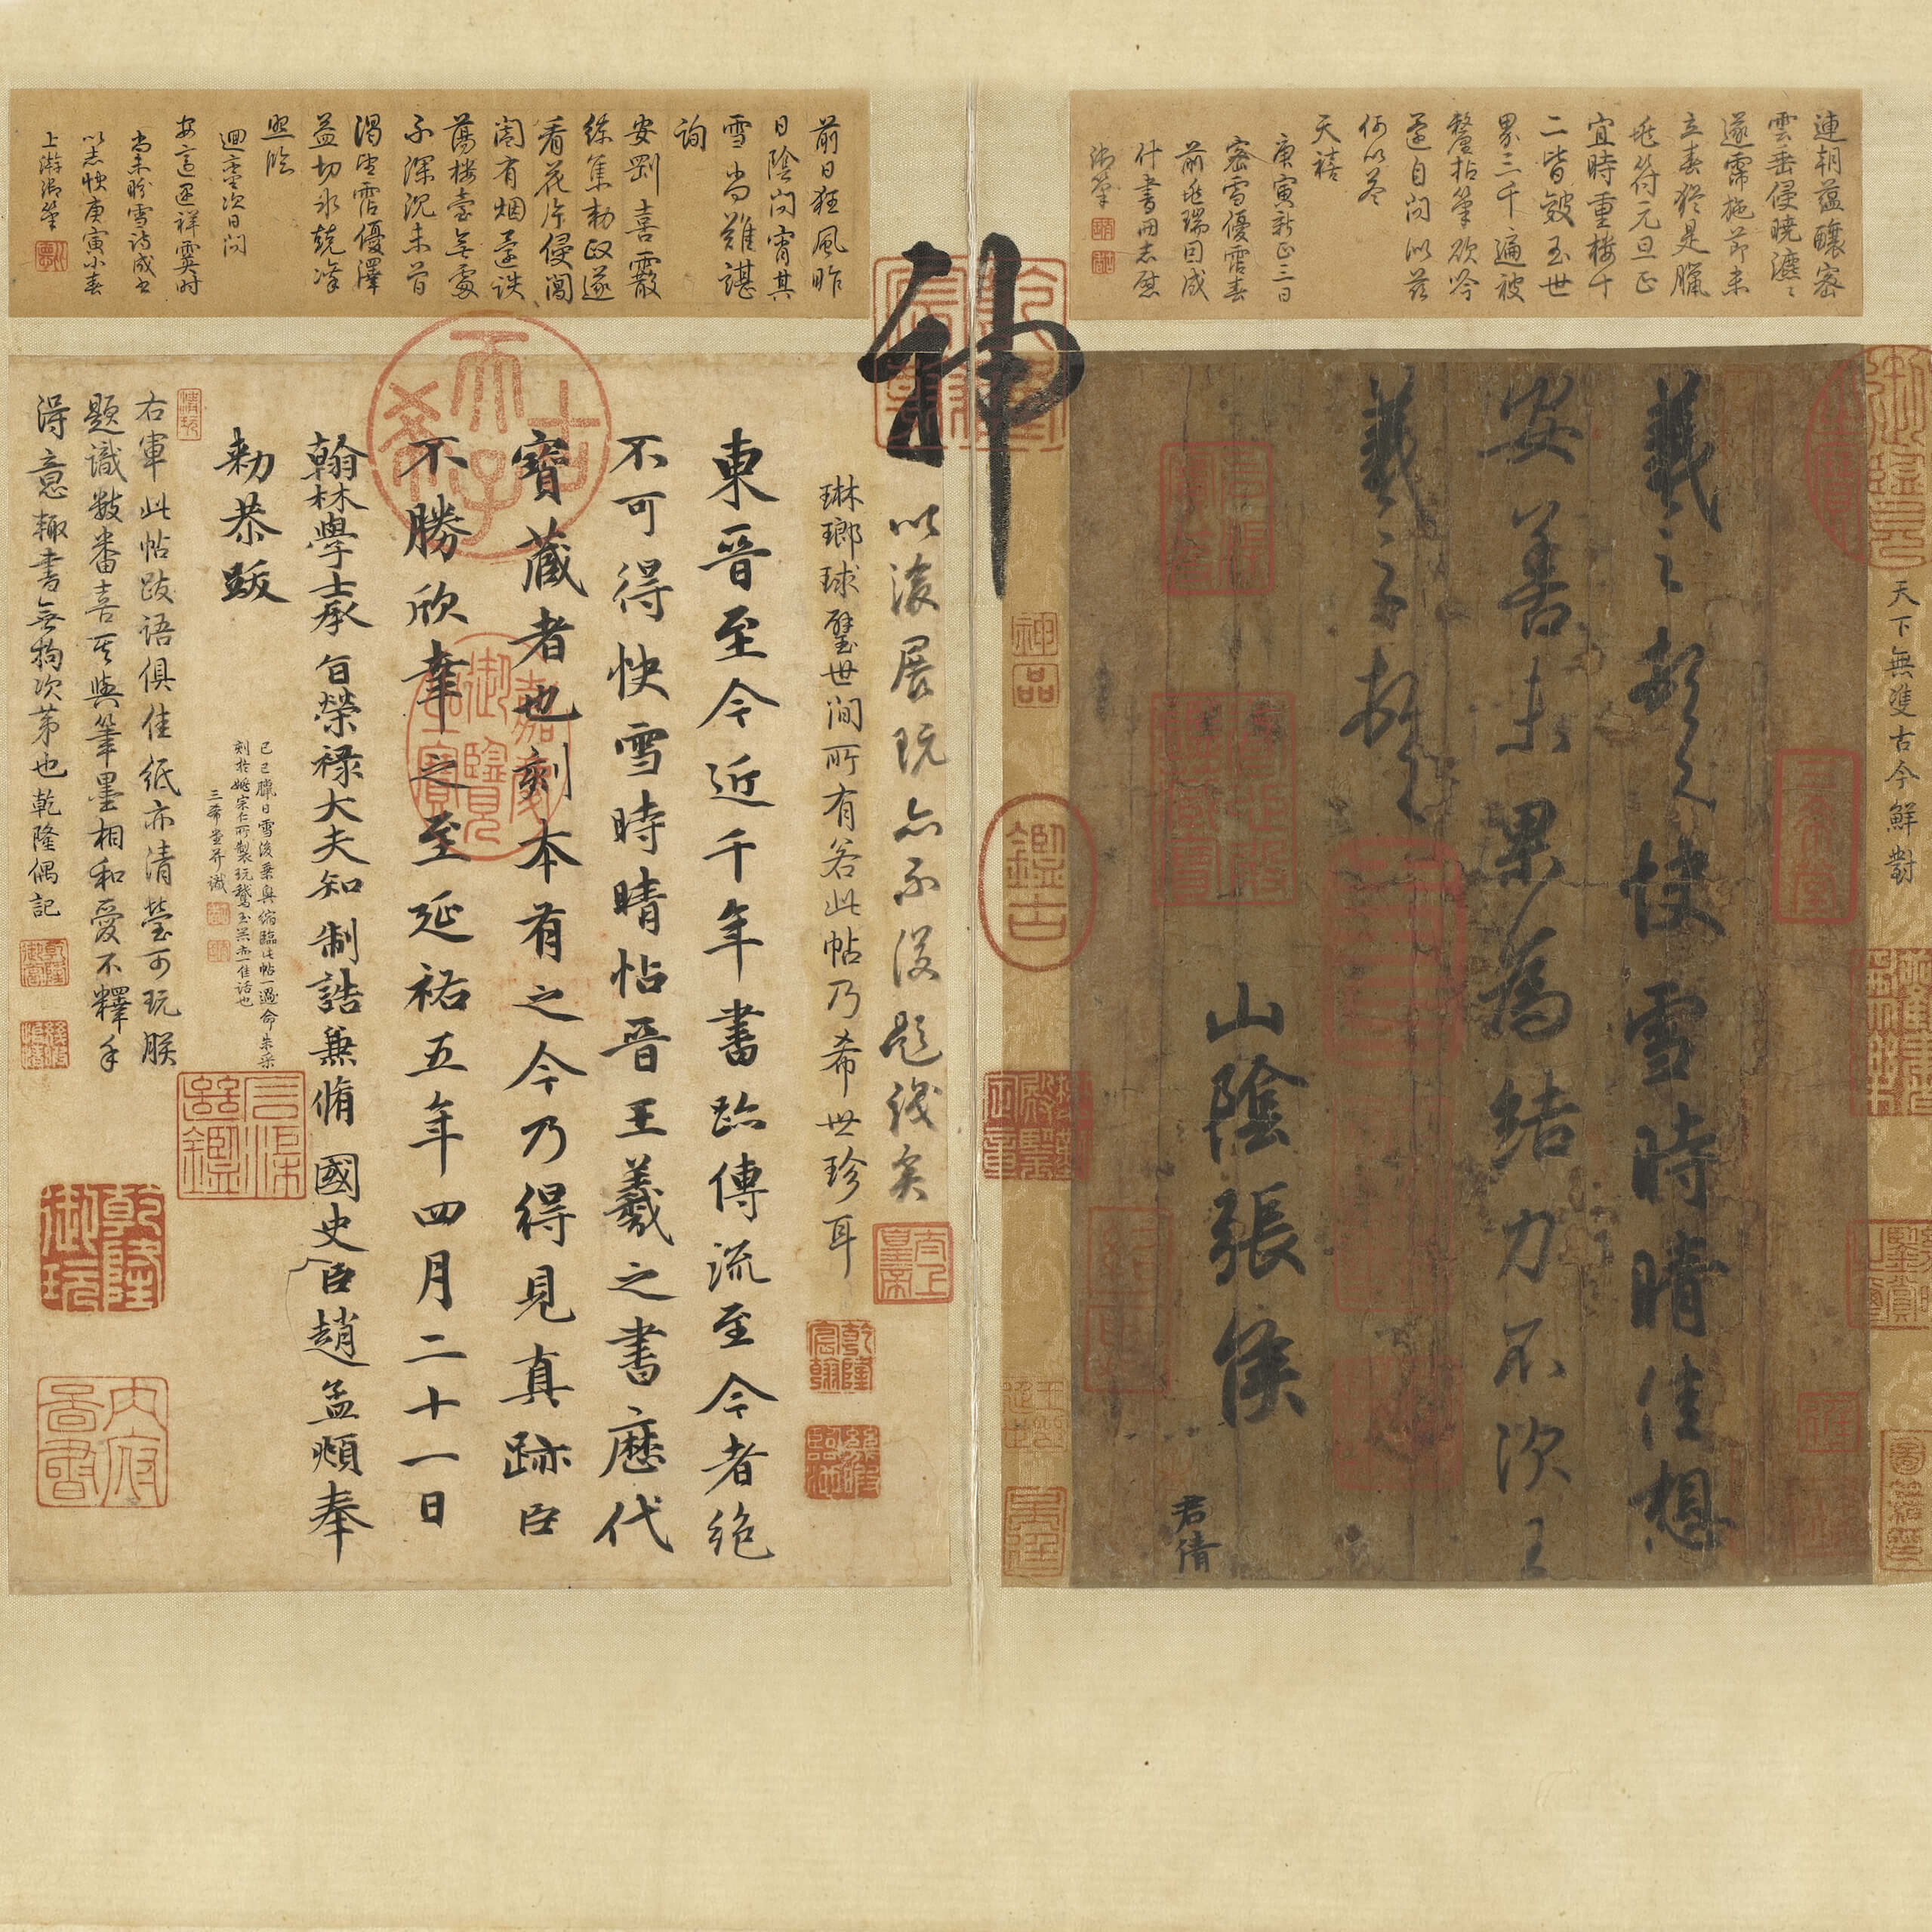 連朝蘊釀密
雲垂侵曉瀌瀌
遂霈施節未
立春猶是臘
兆符元旦正
宜時重樓十
二皆皴玉世
界三千遍被
釐拈筆欲吟
還自問以茲
何以答
天禧
庚寅新正三日
密雪優霑春
前兆瑞因成
什書冊志慰
御筆
天下無雙古今鮮對
羲之頓首快雪時晴佳想
安善未果為結力不次王
羲之頓首
山陰張侯
君倩
神
以後展玩亦不復題識矣
琳瑯球璧世間所有者此帖乃希世珍耳
前日狂風昨
日陰問宵其
雪尚難諶
詢
安劉喜霰
看花片侵閣
闇有烟還訝
舊樓臺無處
不深沉未曾
渴望霑優澤
益切冰兢凜
照臨
當未盼雪詩成書
以志快庚寅小春
上澣御筆
東晉至今近千年書跡傳流至今者絕
不可得快雪時晴帖晉王羲之書歷代
寶藏者也刻本有之今乃得見真跡臣
不勝欣幸之至延祐五年四月二十一日
翰林學士承旨榮祿大夫知制誥兼脩國史臣趙孟頫奉
勑恭跋
己巳臘日雪後乘興偶臨此帖一過命朱采
刻於姚宗仁所製玩鵞玉器亦一佳話也
三希堂并識
右軍此帖跋語俱佳紙亦清瑩可玩朕
題識數番喜其與筆墨相和愛不釋手
得意輒書無拘次第也乾隆偶記
神品
鑑古
乾隆御玩
內府圖書
太上皇帝
乾隆宸翰